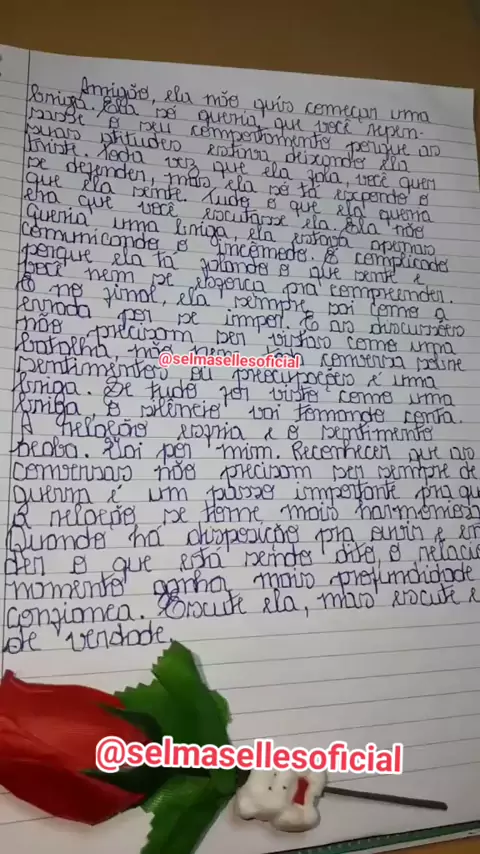 Amigão, ela não quis começar uma
briga. Ela só queria que você repen-
sasse o seu comportamento porque as
suas atitudes estava deixando ela
triste. Toda vez que ela fala, você quer
se defender, mas ela só tá expondo o
que ela sente. Tudo o que ela queria
era que você escutasse ela. Ela não
queria uma briga, ela estava apenas
comunicando o incômodo. É complicado
porque ela tá falando o que sente e
você nem se esforça pra compreender.
E no final, ela sempre sai como a
errada por se impor. E as discussões
não precisam ser vistas como uma
batalha, não conversa sobre
@selmasellesoficial
sentimentos ou preocupações é uma
briga. Se tudo for visto como uma
briga, o silêncio vai tomando conta.
A relação esfria e o sentimento
acaba. Vai por mim. Reconhecer que as
conversas não precisam ser sempre de
guerra é um passo importante pra que
a relação se torne mais harmoniosa
Quando há disposição pra ouvir e en
der o que está sendo dito, o relacio
momento ganha mais profundidade
confiança. Escute ela, mas escute e
de verdade.
@selmasellesoficial